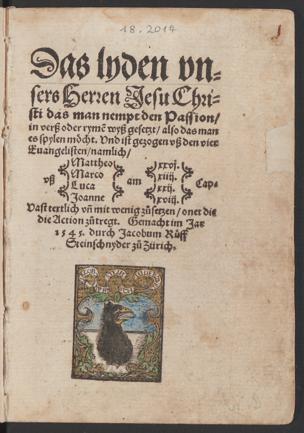 18.2014
1
Das lyden vn-
sers Herren Jesu Chri-
sti das man nempt den Passion/
in verß oder rymẽ wyß gesetzt/also das man
es spylen möcht. Vnd ist gezogen vß den vier
Euangelisten/namlich/
Mattheo xxvj.
Marco xiiij.
vß am Cap-
Luca xxij.
Joanne xviij.
Vast textlich vñ mit wenig zůsetzen/ onet die
die Action zůtregt. Gemacht im Jar
1545. durch Jacobum Růff
Steinschnyder zů Zürich.